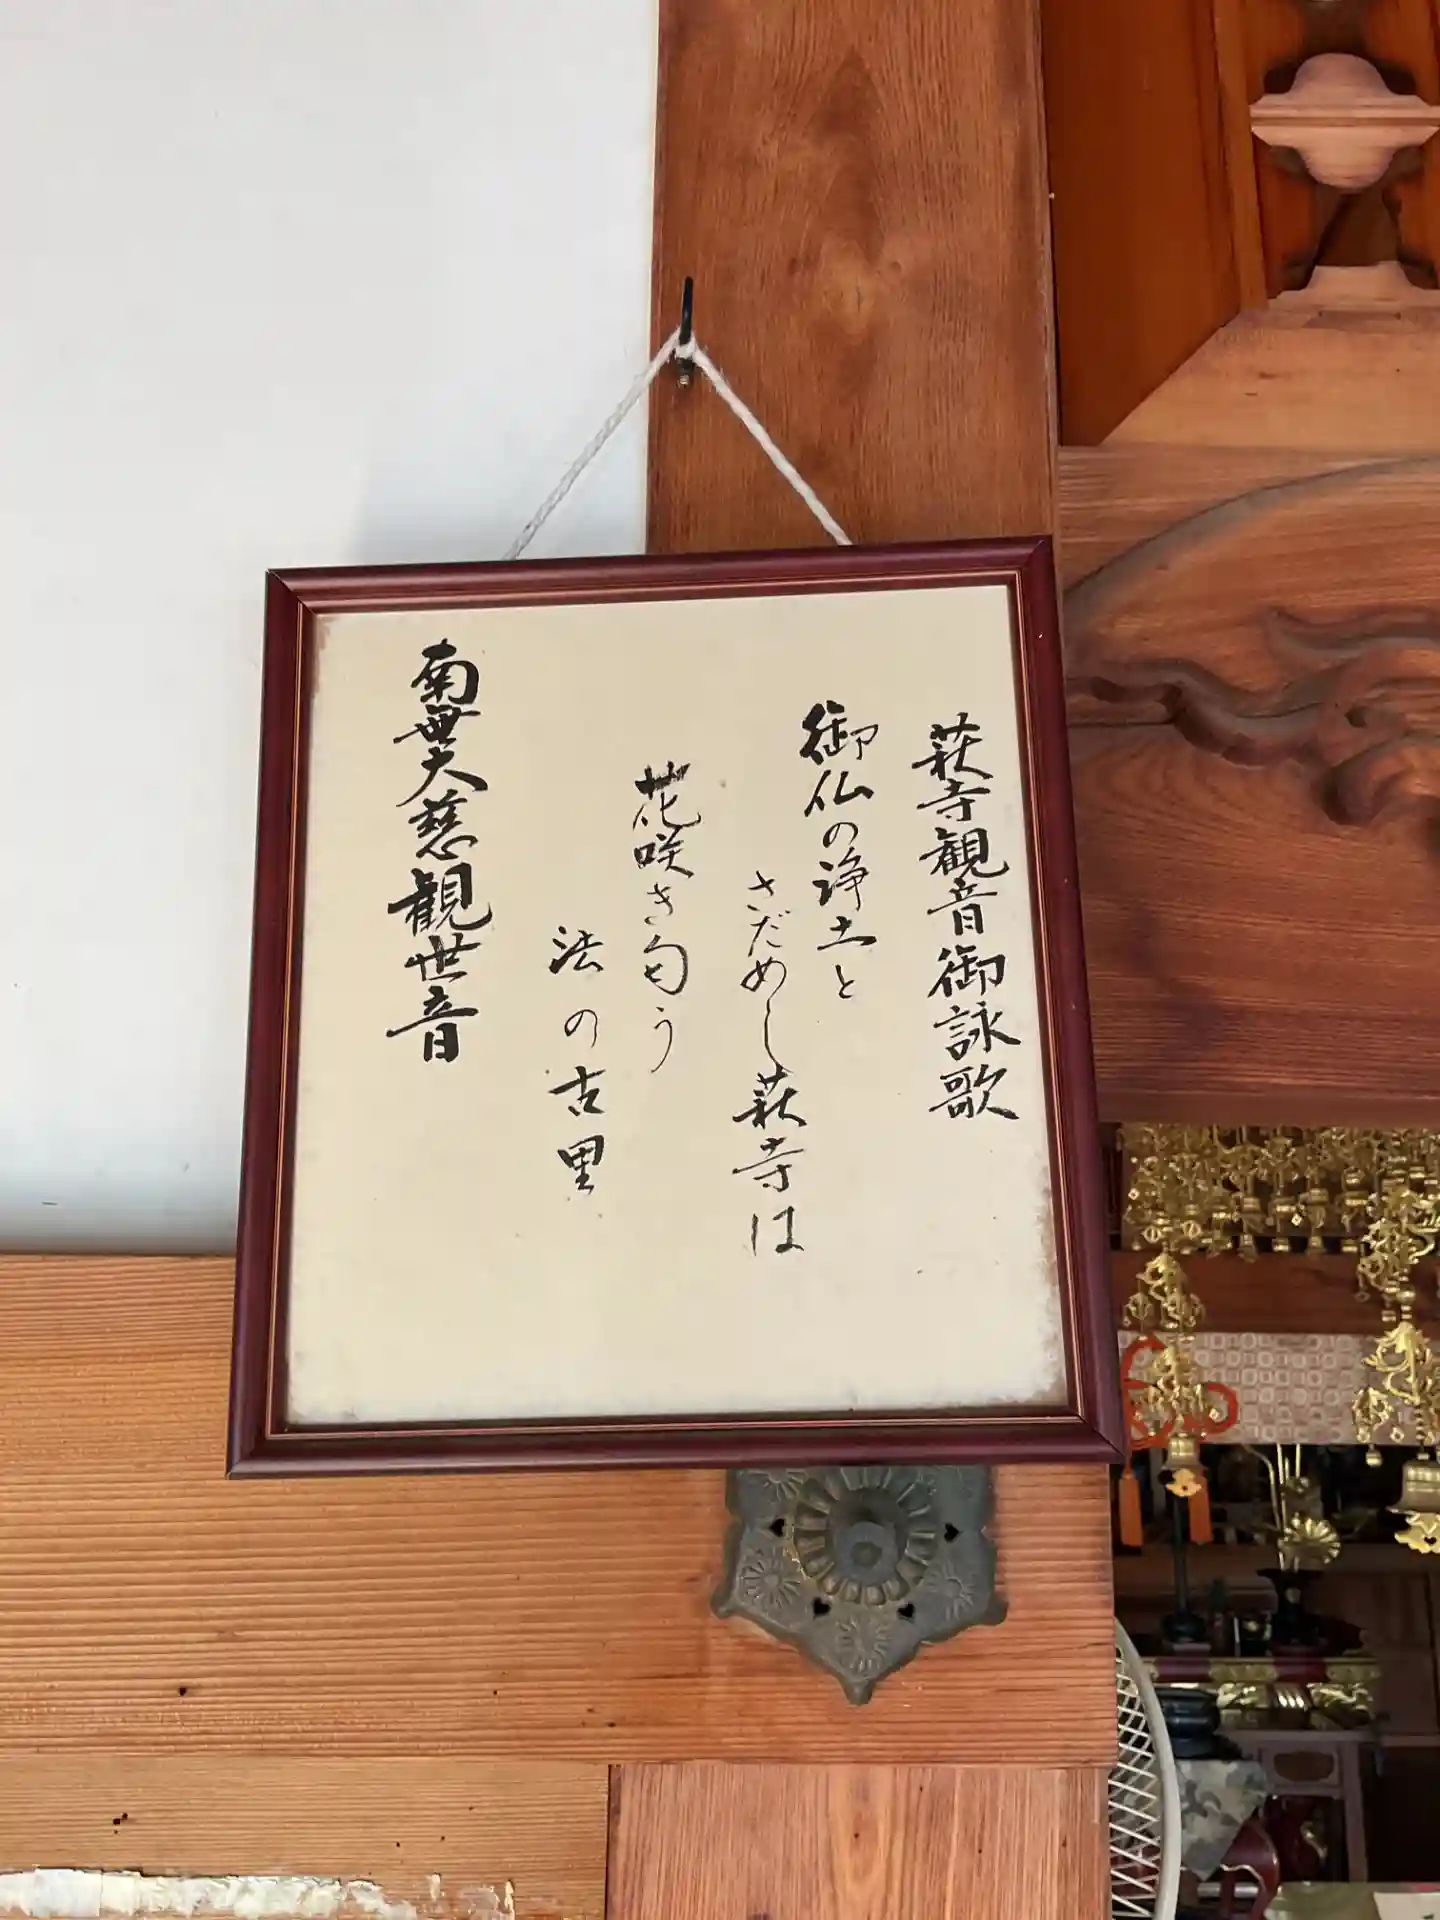 萩寺観音御詠歌
御仏の浄土と
さだめし萩寺は
花咲き匂う
法の古里
南無大慈観世音